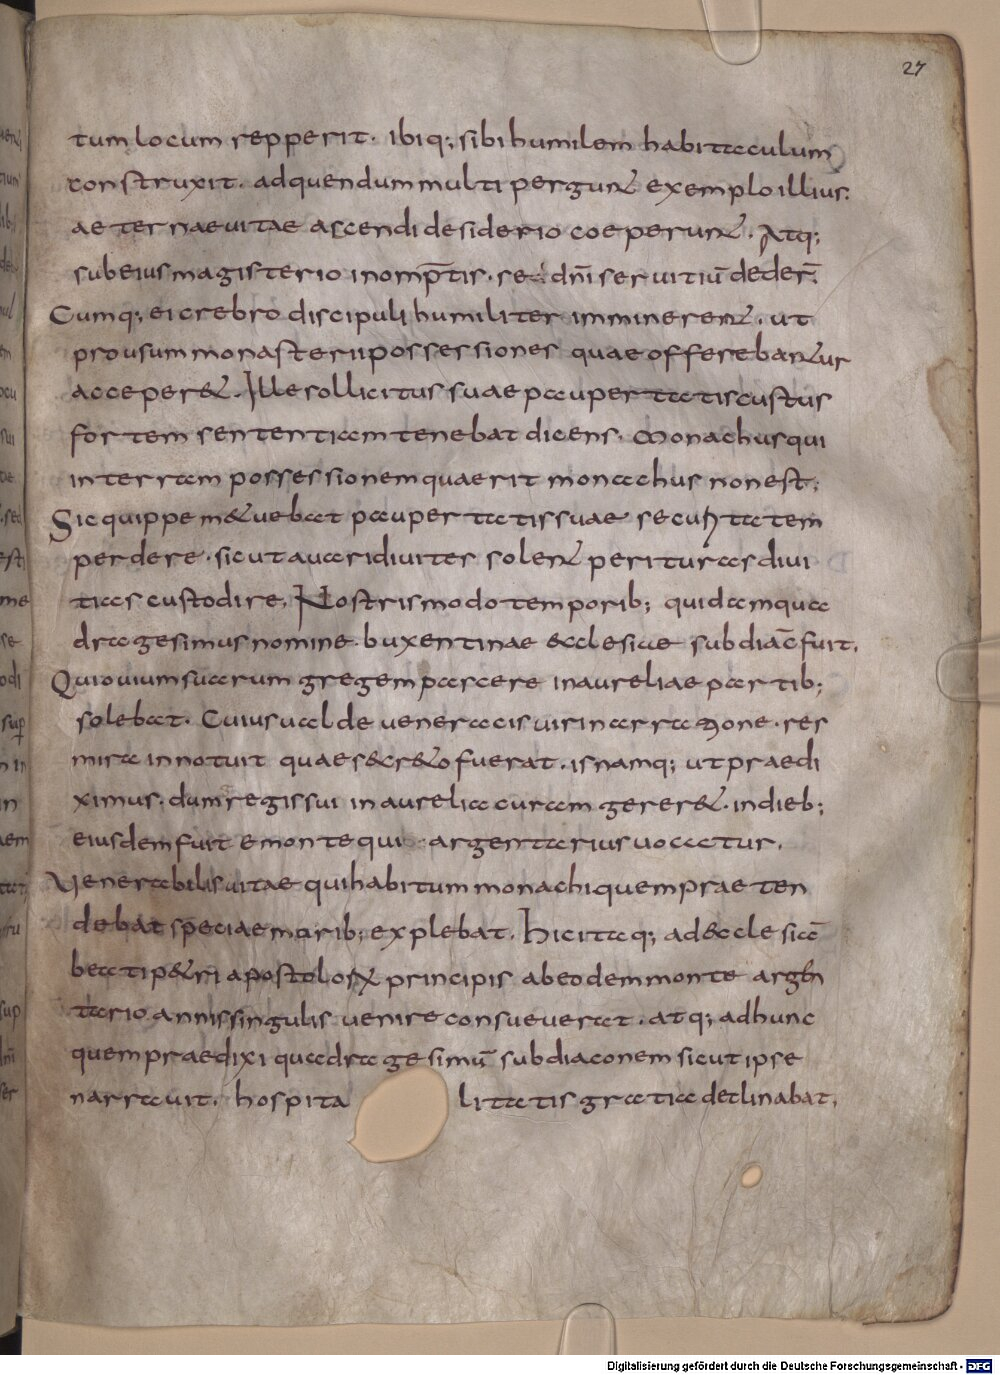 27
tum locum repperit. ibiq; sibi humilem habitaculum
construxit. ad quendum multi pergunt exemplo illius.
aeternae uitae ascendi desiderio coeperunt. Atq;
sub eius magisterio in omp̄tis. se dn̄i seruitiū deder̄.
Cumq; ei crebro discipuli humiliter imminerent. ut
pro usum monasterii possessiones quae offerebantur
acceperet. Ille sollicitus suae paupertatis custus
fortem sententiam tenebat dicens. Monachus qui
in terram possessionem quaerit monachus non est;
Sic quippe metuebat paupertatis suae securitatem
perdere. sicut auari diuites solent perituras diui
tias custodire. Nostris modo temporib; quidam qua
dragesimus nomine. buxentinae ecclesiae subdiac̄ fuit.
Qui ouium suarum gregem pascere in aureliae partib;
solebat. Cuius ualde ueneracis uir in arratione. res
mira innotuit quae secreto fuerat. is namq; ut praedi
ximus. dum regis sui in aurelia curam gereret. in dieb;
eiusdem fuit e monte qui argentarius uocatur.
Uenerabilis uitae qui habitum monachi quem praeten
debat speciae morib; explebat. Hic itaq; ad ecclesiā
beati petri apostolorum principis ab eodem monte argen
tario annis singulis uenire consueuerat. atq; ad hunc
quem praedixi quadragesimū subdiaconem sicut ipse
narrauit. hospita litatis gratia declinabat.
Digitalisierung gefördert durch die Deutsche Forschungsgemeinschaft - DFG